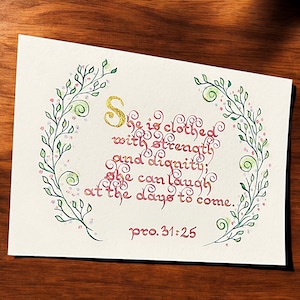 She is clothed
with strength
and dignity;
she can laugh
at the days to come.
pro. 31:25